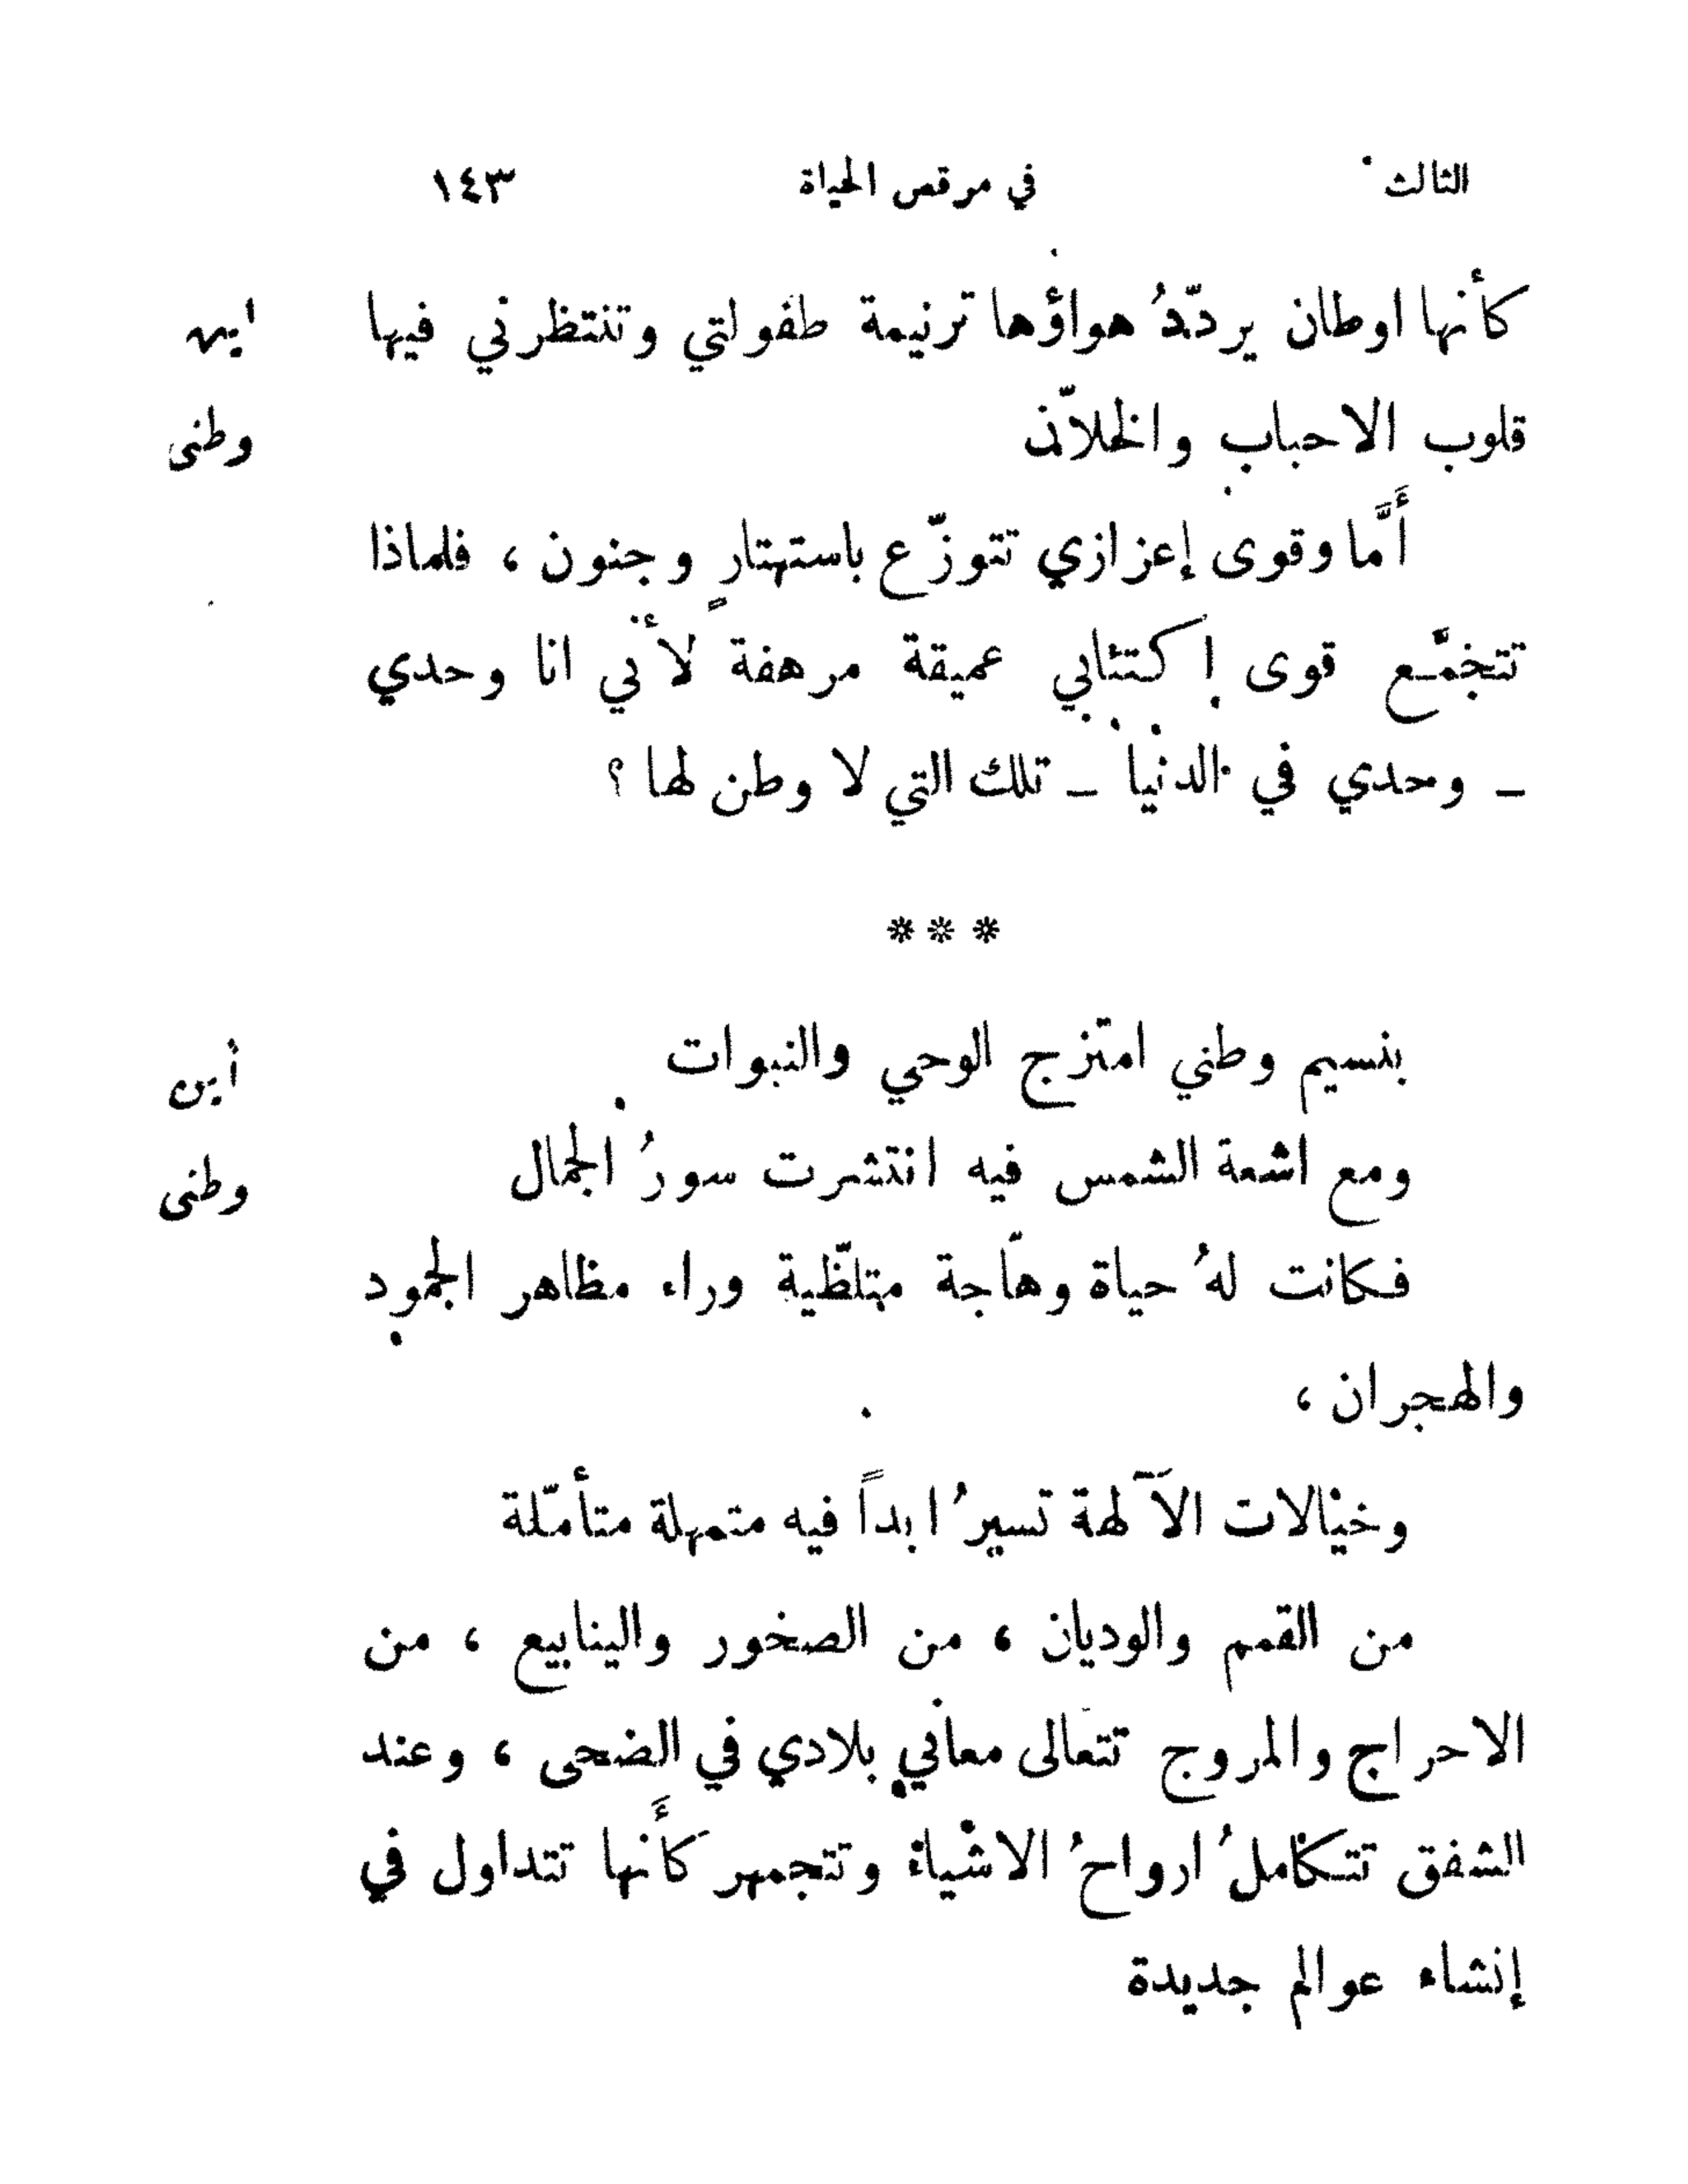 الثالث في مرقص الحياة ١٤٣
كأنها اوطان يردّدُ هواؤها ترنيمة طفولتي وتنتظرني فيها
اين
قلوب الاحباب والخلاّن
وطنى
أَمَّا وقوى إعزازي تتوزّع باستهتارٍ وجنون ، فلماذا
تتجمَّع قوى إكتئابي عميقة مرهفة لأني انا وحدي
– وحدي في الدنيا – تلك التي لا وطن لها ؟
***
بنسيم وطني امتزج الوحي والنبوات
أين
ومع اشعة الشمس فيه انتشرت سورُ الجمال
وطنى
فكانت لهُ حياة وهّاجة متلظّية وراء مظاهر الجمود
والهجران ،
وخيالات الآلهة تسيرُ ابداً فيه متمهلة متأمّلة
من القمم والوديان ، من الصخور والينابيع ، من
الاحراج والمروج تتعالى معاني بلادي في الضحى ، وعند
الشفق تتكاملُ ارواحُ الاشياء وتتجمهر كأَنها تتداول في
إنشاء عوالم جديدة